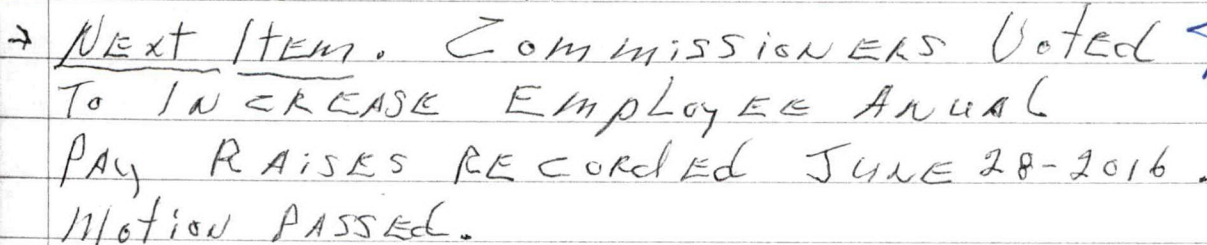 → Next Item. Commissioners Voted
To Increase Employee Anual
Pay Raises Recorded June 28-2016.
Motion Passed.